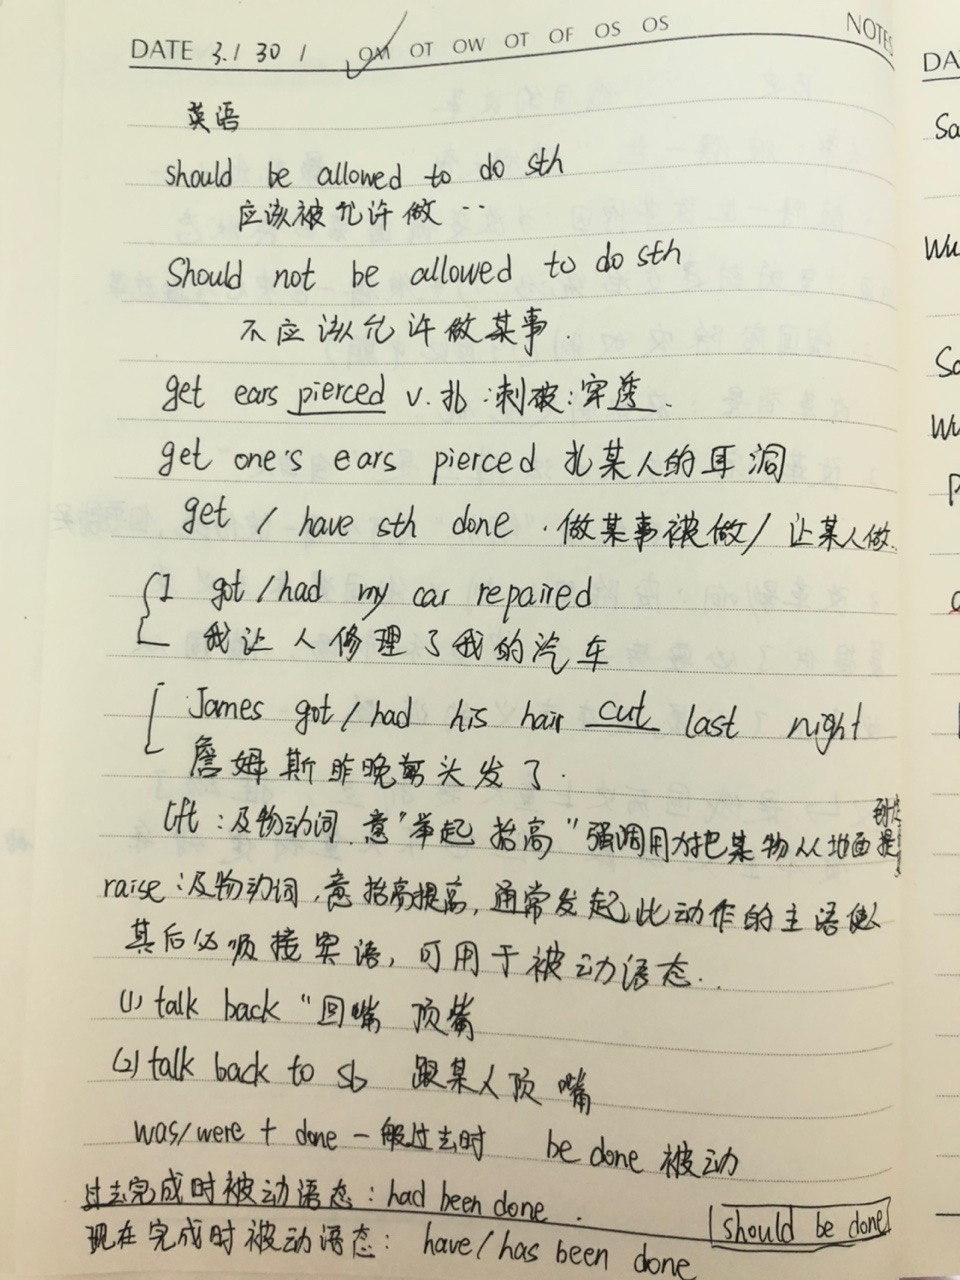 DATE 3.1 30 1 OM OT OW OT OF OS OS NOTES
英语
should be allowed to do sth
应该被允许做 ··
Should not be allowed to do sth
不应该允许做某事.
get ears pierced v. 扎:刺破:穿透.
get one's ears pierced 扎某人的耳洞
get / have sth done . 做某事被做/ 让某人做.
I got/had my car repaired
我让人修理了我的汽车
James got/had his hair cut last night
詹姆斯昨晚剪头发了.
lift:及物动词.意"举起 抬高"强调用力把某物从地面提
raise:及物动词,意抬高提高,通常发起此动作的主语
其后必须接宾语,可用于被动语态..
(1) talk back "回嘴 顶嘴
(2) talk back to sb 跟某人顶嘴
was/were + done 一般过去时 be done 被动
过去完成时被动语态:had been done .
should be done
现在完成时被动语态: have/has been done
DA
So
Wu
So
Wu
P